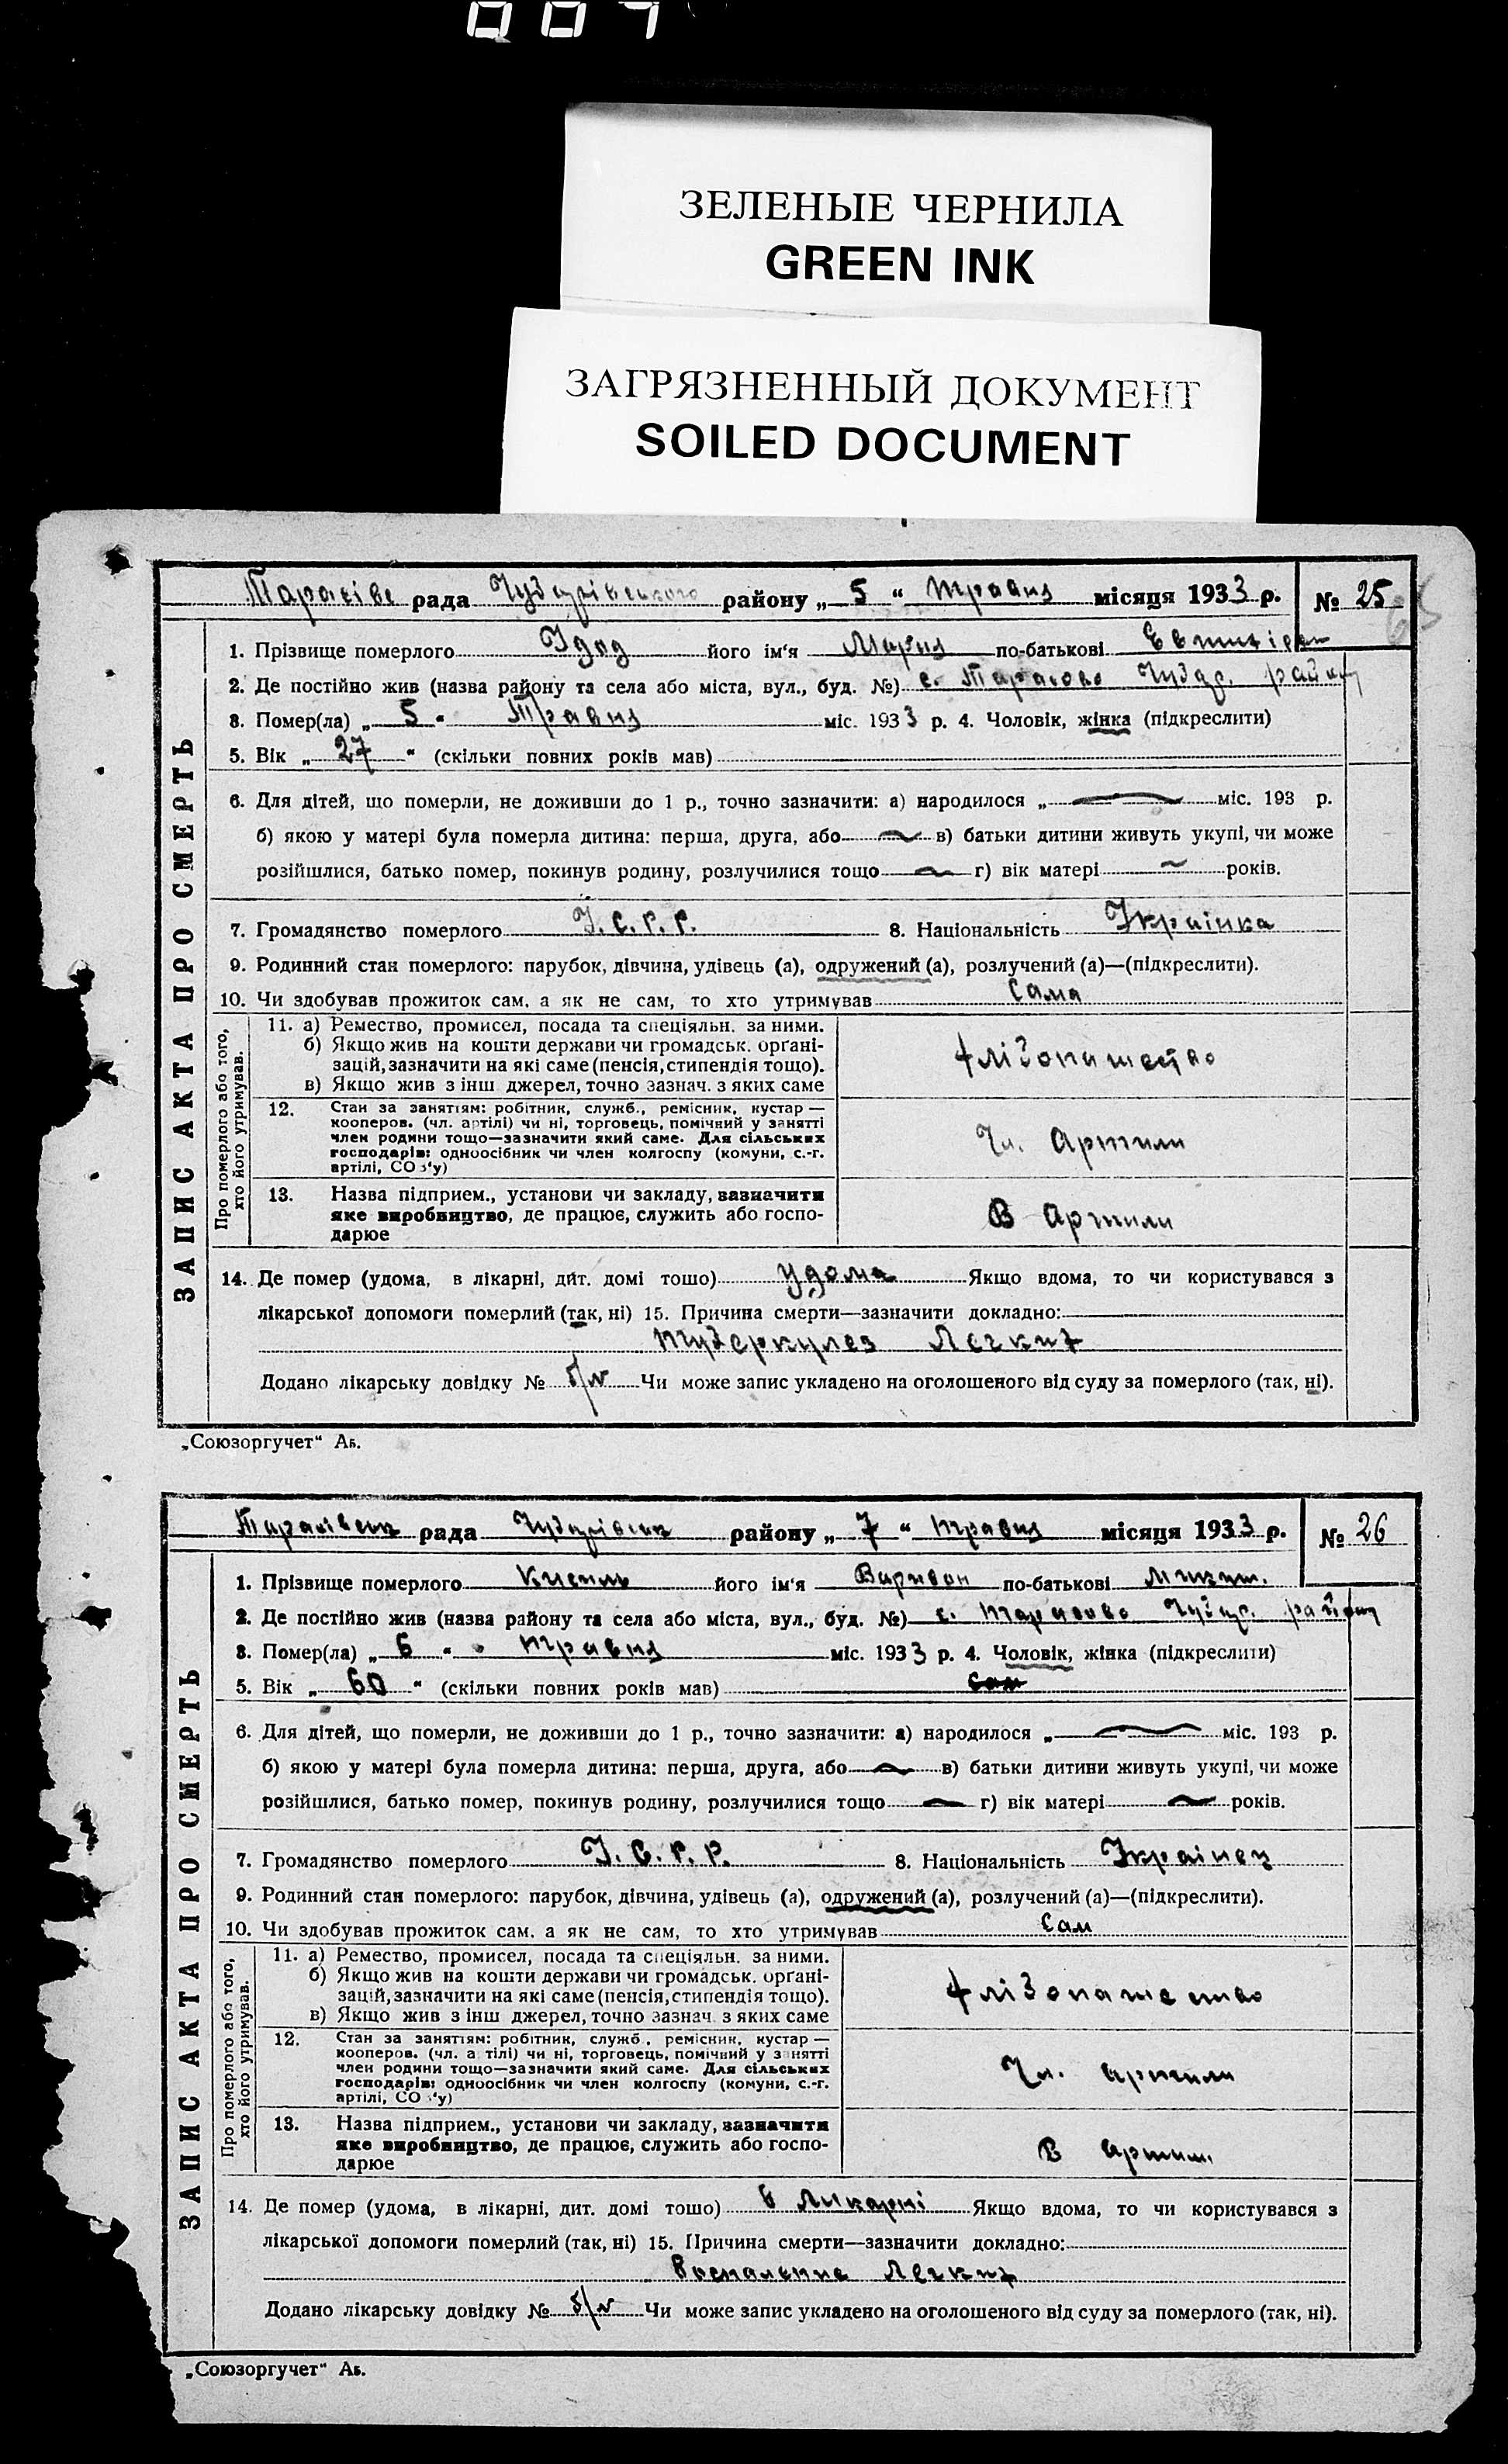 007
ЗЕЛЕНЫЕ ЧЕРНИЛА
GREEN INK
ЗАГРЯЗНЕННЫЙ ДОКУМЕНТ
SOILED DOCUMENT
ЗАПИС АКТА ПРО СМЕРТЬ
рада району „ 5 “ Травня місяця 1933 р. № 25
1. Прізвище померлого його ім'я Мария по-батькові
2. Де постійно жив (назва району та села або міста, вул., буд. №) с. Тарасовo
3. Помер(ла) „ 5 “ Травня міс. 1933 р. 4. Чоловік, жінка (підкреслити)
5. Вік „ 27 “ (скільки повних років мав)
6. Для дітей, що померли, не доживши до 1 р., точно зазначити: а) народилося „ міс. 193 р.
б) якою у матері була померла дитина: перша, друга, або в) батьки дитини живуть укупі, чи може
розійшлися, батько помер, покинув родину, розлучилися тощо г) вік матері років.
7. Громадянство померлого У.С.Р.Р. 8. Національність Украінка
9. Родинний стан померлого: парубок, дівчина, удівець (а), одружений (а), розлучений (а)—(підкреслити).
10. Чи здобував прожиток сам, а як не сам, то хто утримував Сама
Про померлого або того, хто його утримував.
11. а) Ремество, промисел, посада та спеціяльн. за ними.
б) Якщо жив на кошти держави чи громадськ. орґані-
зацій, зазначити на які саме (пенсія, стипендія тощо).
в) Якщо жив з інш. джерел, точно зазнач. з яких саме
Хлібопашество
12. Стан за заняттям: робітник, служб., ремісник, кустар—
кооперов. (чл. артілі) чи ні, торговець, помічний у занятті
член родини тощо—зазначити який саме. Для сільських
господарів: одноосібник чи член колгоспу (комуни, с.-г.
артілі, СОЗ'у)
Чл. Артили
13. Назва підприєм., установи чи закладу, зазначити
яке виробництво, де працює, служить або госпо-
дарює
В Артили
14. Де помер (удома, в лікарні, дит. домі тощо) удома Якщо вдома, то чи користувався з
лікарської допомоги померлий (так, ні) 15. Причина смерти—зазначити докладно:
Туберкулез Легких
Додано лікарську довідку № б/н Чи може запис укладено на оголошеного від суду за померлого (так, ні).
„Союзоргучет“ Аб.
ЗАПИС АКТА ПРО СМЕРТЬ
рада району „ 7 “ Травня місяця 1933 р. № 26
1. Прізвище померлого Кисиль його ім'я по-батькові
2. Де постійно жив (назва району та села або міста, вул., буд. №) с. Тарасово
3. Помер(ла) „ 6 “ Травня міс. 1933 р. 4. Чоловік, жінка (підкреслити)
5. Вік „ 60 “ (скільки повних років мав)
6. Для дітей, що померли, не доживши до 1 р., точно зазначити: а) народилося „ міс. 193 р.
б) якою у матері була померла дитина: перша, друга, або в) батьки дитини живуть укупі, чи може
розійшлися, батько помер, покинув родину, розлучилися тощо г) вік матері років.
7. Громадянство померлого У.С.Р.Р. 8. Національність Украінец
9. Родинний стан померлого: парубок, дівчина, удівець (а), одружений (а), розлучений (а)—(підкреслити).
10. Чи здобував прожиток сам, а як не сам, то хто утримував Сам
Про померлого або того, хто його утримував.
11. а) Ремество, промисел, посада та спеціяльн. за ними.
б) Якщо жив на кошти держави чи громадськ. орґані-
зацій, зазначити на які саме (пенсія, стипендія тощо).
в) Якщо жив з інш джерел, точно зазнач. з яких саме
Хлібопашество
12. Стан за заняттям: робітник, служб., ремісник, кустар—
кооперов. (чл. артілі) чи ні, торговець, помічний у занятті
член родини тощо—зазначити який саме. Для сільських
господарів: одноосібник чи член колгоспу (комуни, с.-г.
артілі, СОЗ'у)
Чл. артили
13. Назва підприєм., установи чи закладу, зазначити
яке виробництво, де працює, служить або госпо-
дарює
В артили
14. Де помер (удома, в лікарні, дит. домі тощо) в Ликарні Якщо вдома, то чи користувався з
лікарської допомоги померлий (так, ні) 15. Причина смерти—зазначити докладно:
Воспаление Легких
Додано лікарську довідку № б/н Чи може запис укладено на оголошеного від суду за померлого (так, ні).
„Союзоргучет“ Аб.